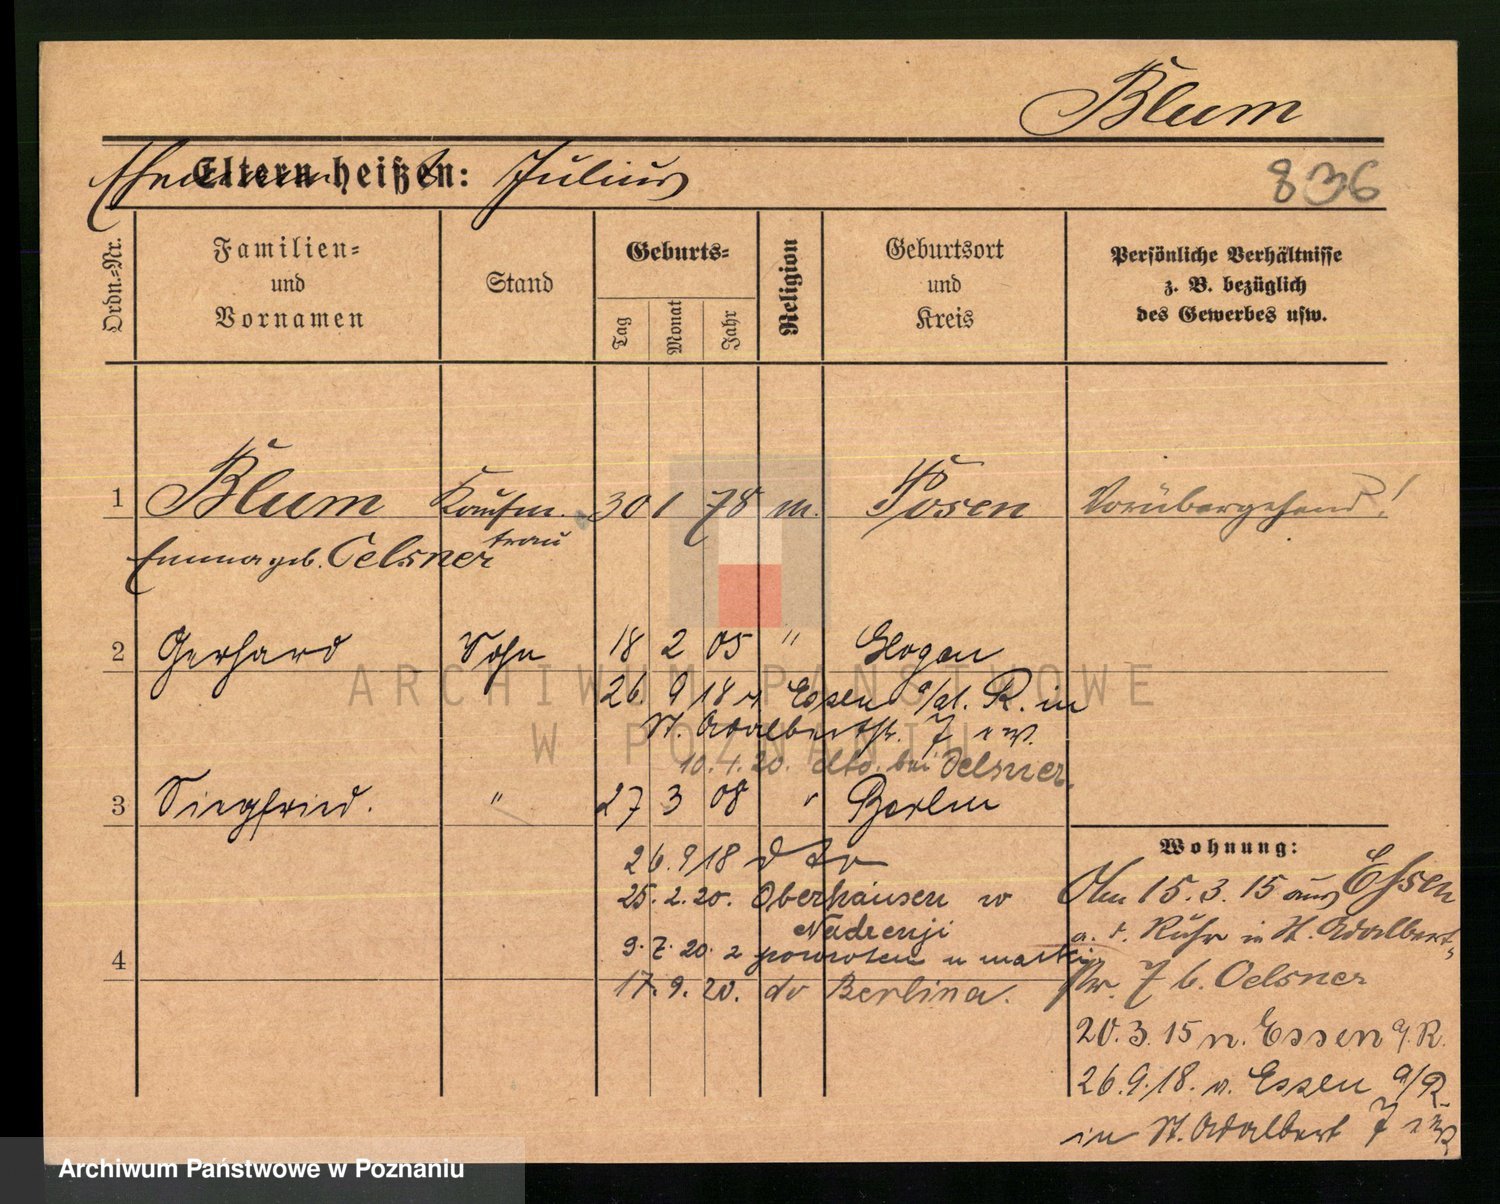 Blum
Eltern heißen: Julius
836
Ordn.-Nr.
Familien-
und
Vornamen
Stand
Geburts-
Tag
Monat
Jahr
Religion
Geburtsort
und
Kreis
Persönliche Verhältnisse
z. B. bezüglich
des Gewerbes usw.
1 Blum Kaufm. 30 1 78 m. Posen Vorübergehend!
frau
Emma geb. Oelsner
2 Gerhard Sohn 18 2 05 " Glogau
26. 9 18 v. Essen a/d. R. in
St. Adalbertstr. 7
10.1.20. dto. bei Oelsner.
3 Siegfried. " 27 3 08 " Berlin
26.9.18 dto
25. 2. 20. Oberhausen w
Nadrenji
9. 7. 20. z powrotem u matki
4
17. 9. 20. do Berlina.
Wohnung:
Am 15. 3. 15 aus Essen
a. d. Ruhr in St. Adalbert-
str. 7 b. Oelsner
20. 3. 15 n. Essen a/R.
26. 9. 18. v. Essen a/R.
in St. Adalbert 7
ARCHIWUM PAŃSTWOWE
W POZNANIU
Archiwum Państwowe w Poznaniu